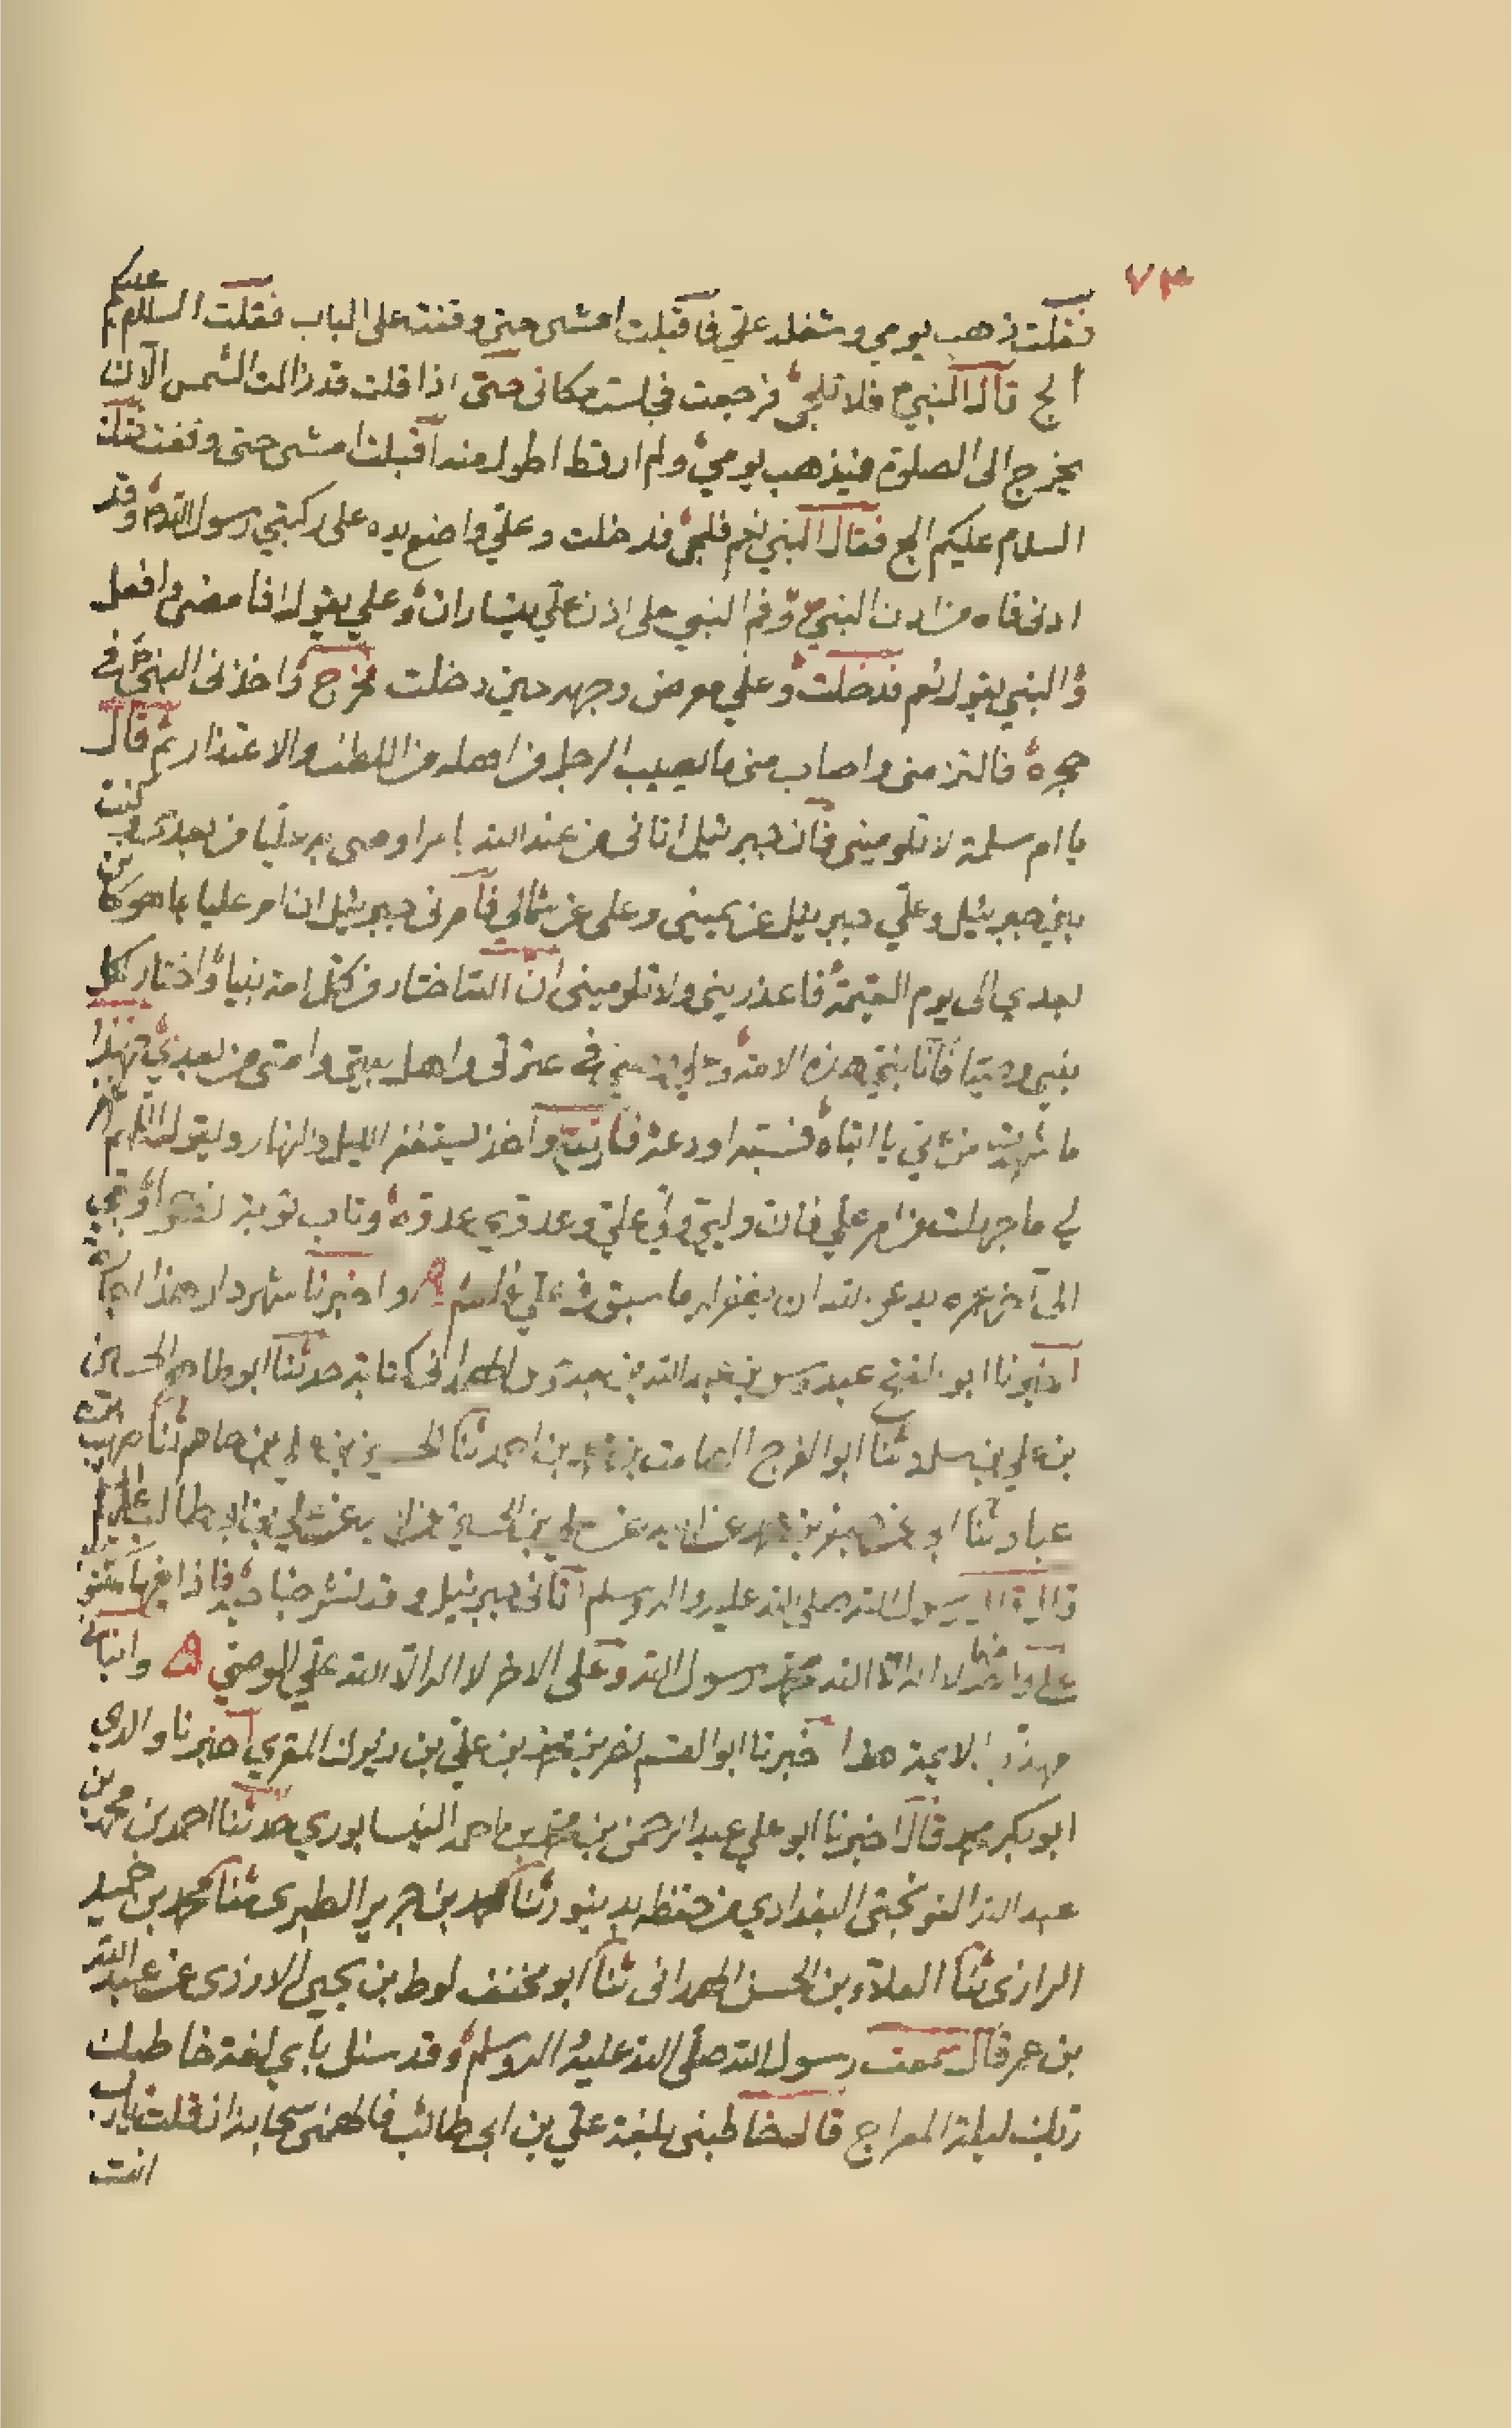 ٧٣
فقلت ذهب يومي وشغله علي فاقبلت امشي حتى وقفت على الباب فقلت السلام عليكم
الج قال النبي فلا تلجي فرجعت فجلست مكاني حتى اذا قلت قد زالت الشمس الآن
يخرج الى الصلوة فيذهب يومي ولم ار قط اطول منه اقبلت امشي حتى وقفت فقلت
السلام عليكم الج فقال النبي نعم فلجي فدخلت وعلي واضع يده على ركبتي رسول الله وقد
ادنى فاه من اذن النبي وفم النبي على اذن علي يتساران وعلي يقول افامضي وافعل
والنبي يقول نعم فدخلت وعلي معرض وجهه حين دخلت فخرج واخذني النبي في
حجره فالتزمني واصاب مني ما يصيب الرجل من اهله من اللطف والاعتذار ثم قال
يا ام سلمة لا تلوميني فان جبرئيل اتاني من عند الله يامر اوصي به عليا من بعدي وكنت
بين جبرئيل وعلي جبرئيل عن يميني وعلي عن شمالي فامرني جبرئيل ان امر عليا بما هو كائن
بعدي الى يوم القيمة فاعذريني ولا تلوميني ان الله اختار من كل امة نبيا واختار لكل
نبي وصيا فانا نبي هذه الامة وعلي وصيي في عترتي واهل بيتي وامتي من بعدي فهذا
ما شهدت من علي يا ابتاه فسبه او دعه فا واخذ يستغفر الليل والنهار ويقول اللهم اغفر
لي ما جهلت من امر علي فان وليي ولي علي وعدوي عدوه وتاب توبة نصوحا وبقي
الى آخر عمره يدعو الله ان يغفر له ما سبق في علي واخبرنا شهردار هذا اجازة
اخبرنا ابو الفتح عبدوس بن عبد الله بن عبدوس الهمداني كتابة حدثنا ابو طاهر الحسين
بن علي بن سلمة ثنا ابو الفرج الصامت بن محمد بن احمد ثنا الحسين بن علي بن عاصم ثنا صهيب بن
عباد ثنا ابي عن جعفر بن محمد عن ابيه عن علي بن الحسين عن ابيه عن علي بن ابي طالب عليهم السلام
قال قال رسول الله صلى الله عليه واله وسلم اتاني جبرئيل وقد نشر جناحيه فاذا فيها مكتوب
على واحد لا اله الا الله محمد رسول الله وعلى الاخر لا اله الا الله علي الوصي وانباني
مهذب الايمة هذا اخبرنا ابو القسم نصر بن محمد بن علي بن زيرك المقري اخبرنا والدي
ابو بكر محمد قال اخبرنا ابو علي عبد الرحمن بن محمد بن احمد النيسابوري حدثنا احمد بن محمد بن
عبد الله النونجتي البغدادي من حفظه بدينور ثنا محمد بن جرير الطبري ثنا محمد بن حميد
الرازي ثنا العلاء بن الحسن الهمداني ثنا ابو مخنف لوط بن يحيى الازدي عن عبد الله
بن عمر قال سمعت رسول الله صلى الله عليه واله وسلم وقد سئل باي لغة خاطبك
ربك ليلة المعراج قال خاطبني بلغة علي بن ابي طالب فالهمني ان قلت يارب
انت